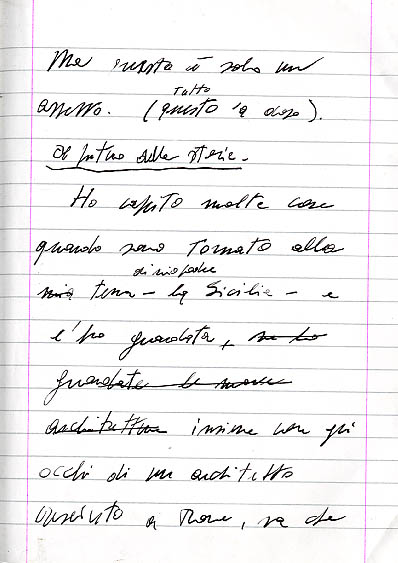 Ma questo è solo un
tutto
aspetto. (questo va dopo).
Il futuro della storia.
Ho capito molte cose
quando sono tornato alla
di mio padre
mia terra - la Sicilia - e
l'ho guardata, 
guardata le nuove
architetture insieme con gli
occhi di un architetto
cresciuto a Roma, sa che